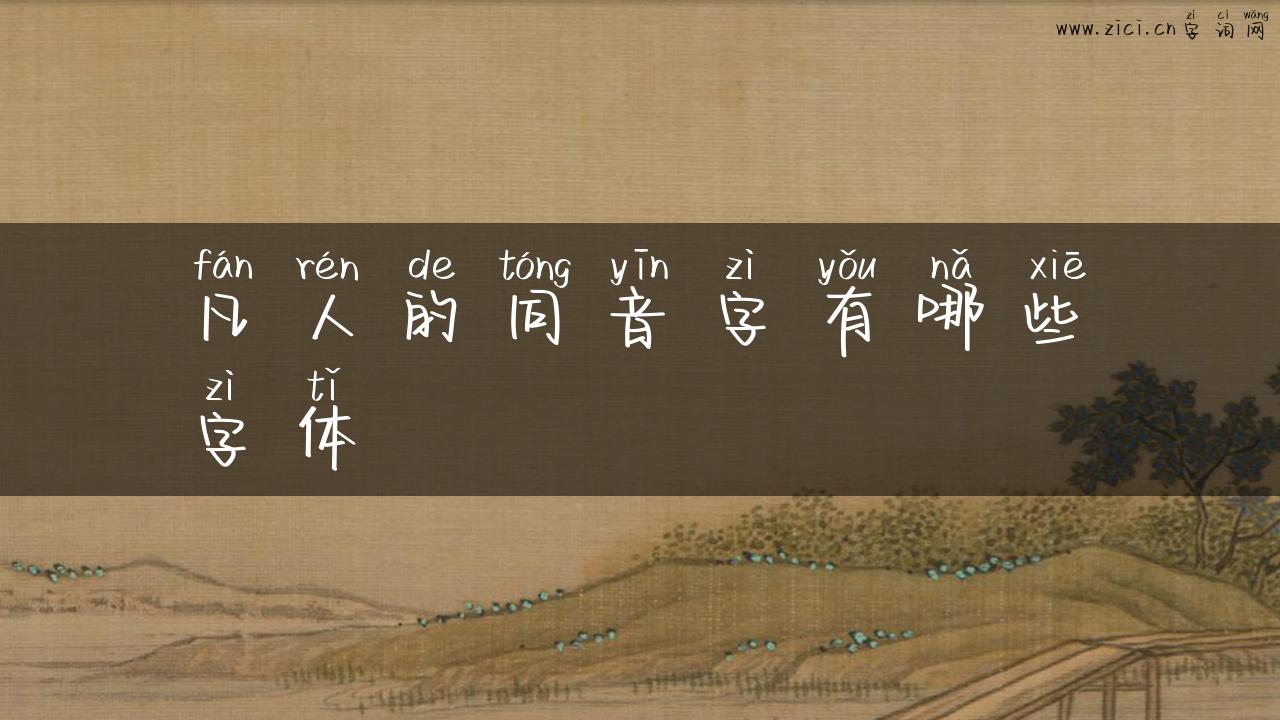 zì cí wǎng
www.zici.cn字词网
fán rén de tóng yīn zì yǒu nǎ xiē
凡人的同音字有哪些
zì tǐ
字体